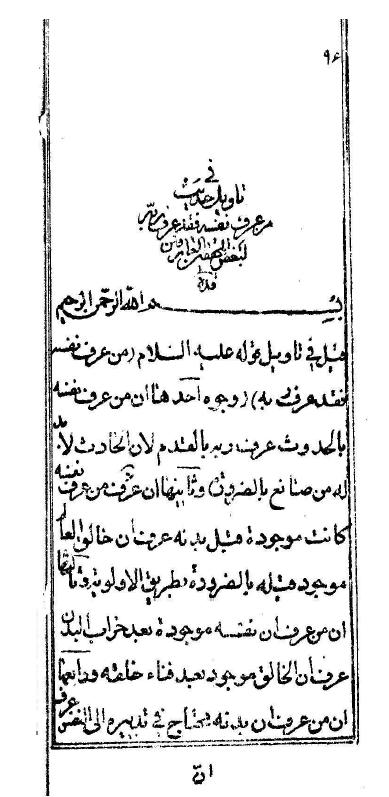 ٩٤
في
تاويل حديث
من عرف نفسه فقد عرف ربه
لبعض
قده
بسم الله الرحمن الرحيم
قيل في تاويل قوله عليه السلام (من عرف نفسه
فقد عرف ربه) وجوه احدها ان من عرف نفسه
بالحدوث عرف ربه بالقدم لان الحادث لابد
له من صانع بالضرورة وثانيها ان عرف من عرف نفسه
كانت موجودة قبل بدنه عرف ان خالق العالم
موجود قبله بالضرورة بطريق الاولوية وثالثها
ان من عرف ان نفسه موجودة بعد خراب البدن
عرف ان الخالق موجود بعد فناء خلقه ورابعها
ان من عرف ان بدنه يحتاج في تدبيره الى النفس عرف
ان